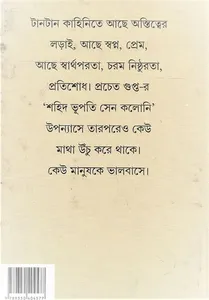 টানটান কাহিনিতে আছে অস্তিত্বের
লড়াই, আছে স্বপ্ন, প্রেম,
আছে স্বার্থপরতা, চরম নিষ্ঠুরতা,
প্রতিশোধ। প্রচেত গুপ্ত-র
‘শহিদ ভূপতি সেন কলোনি’
উপন্যাসে তারপরেও কেউ
মাথা উঁচু করে থাকে।
কেউ মানুষকে ভালবাসে।